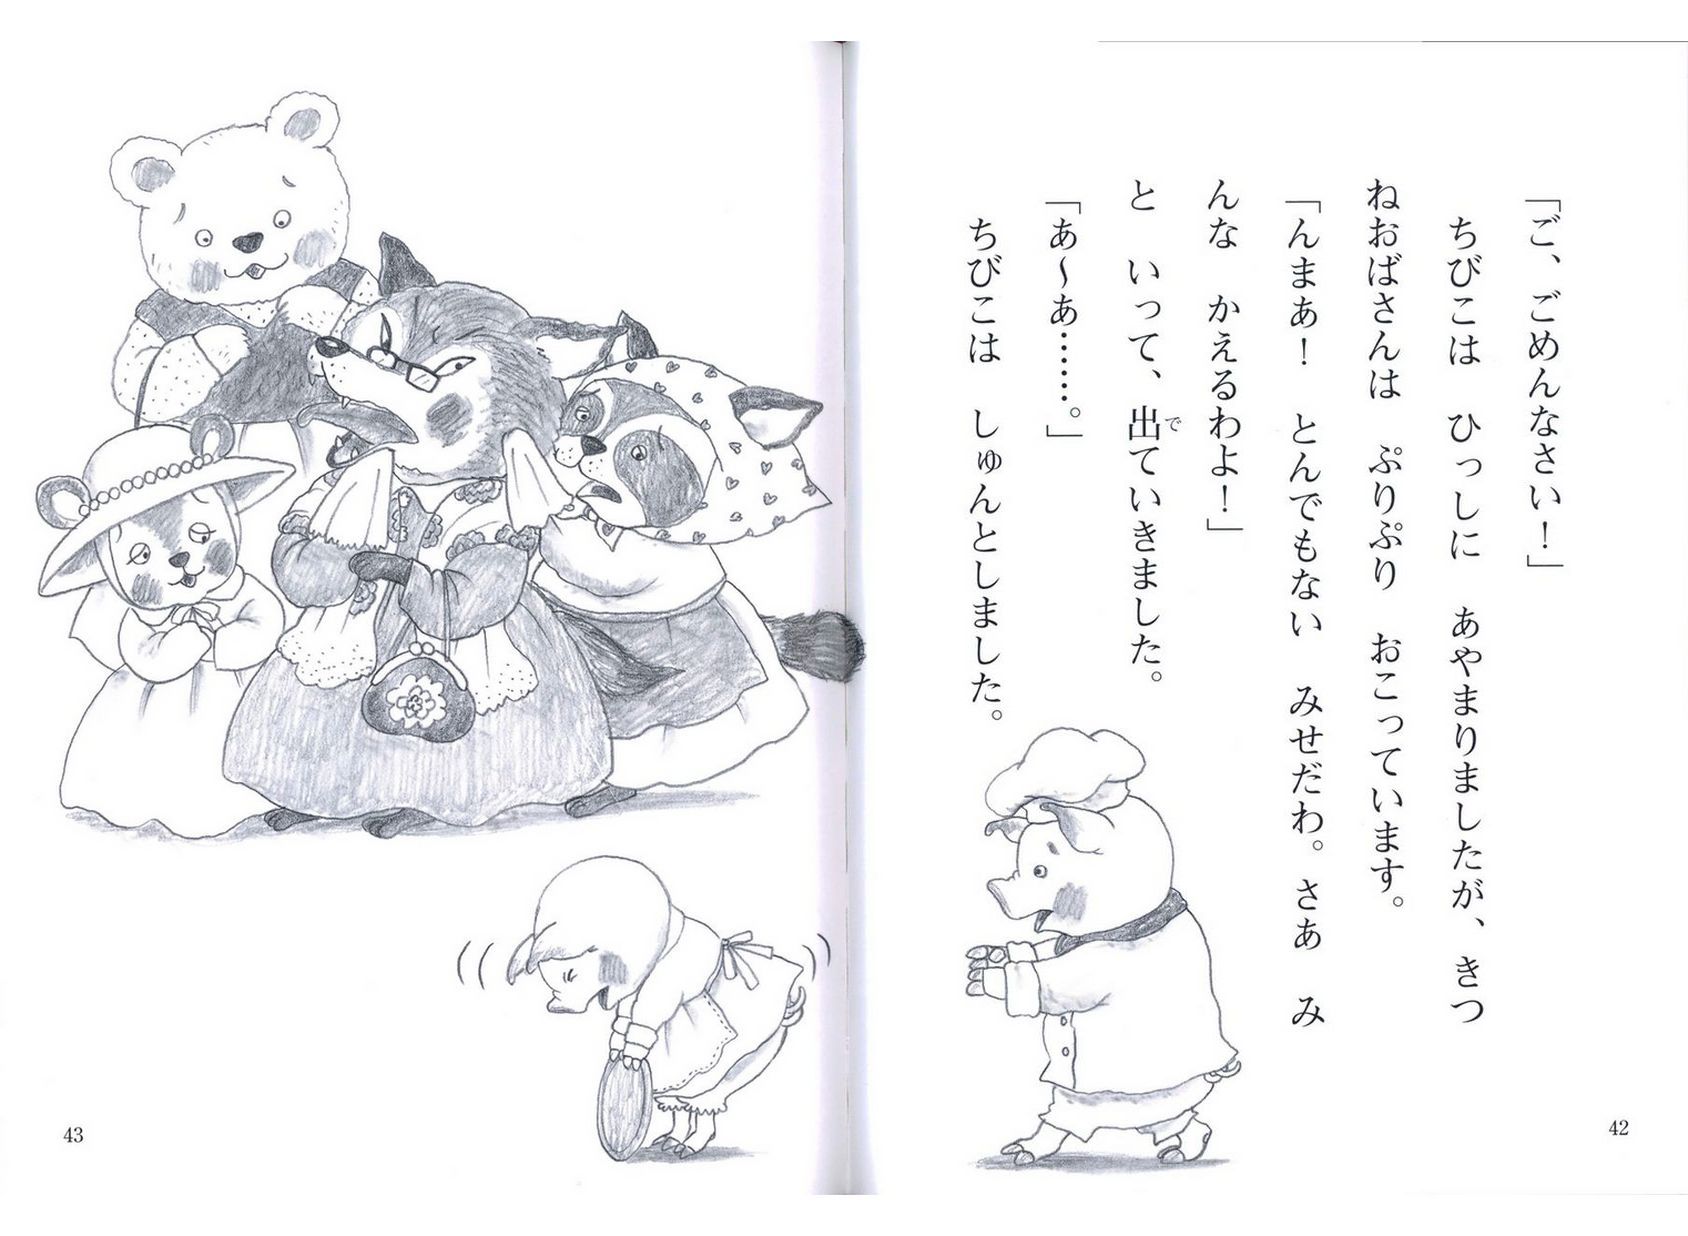 「ご、ごめんなさい！」
　ちびこは　ひっしに　あやまりましたが、きつ
ねおばさんは　ぷりぷり　おこっています。
「んまあ！　とんでもない　みせだわ。さあ　み
んな　かえるわよ！」
と　いって、出ていきました。
で
「あ〜あ……。」
　ちびこは　しゅんとしました。
42
43